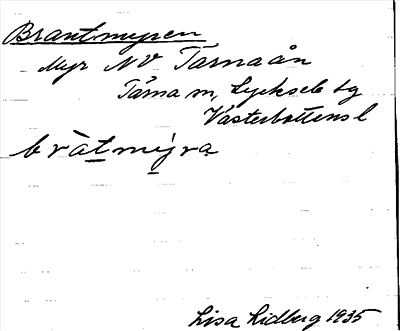 Brantmyren
Myr NV Tärnaån
Tärna sn, Lycksele lg
Västerbottens l
bràtmýra
Lisa Lidberg 1935